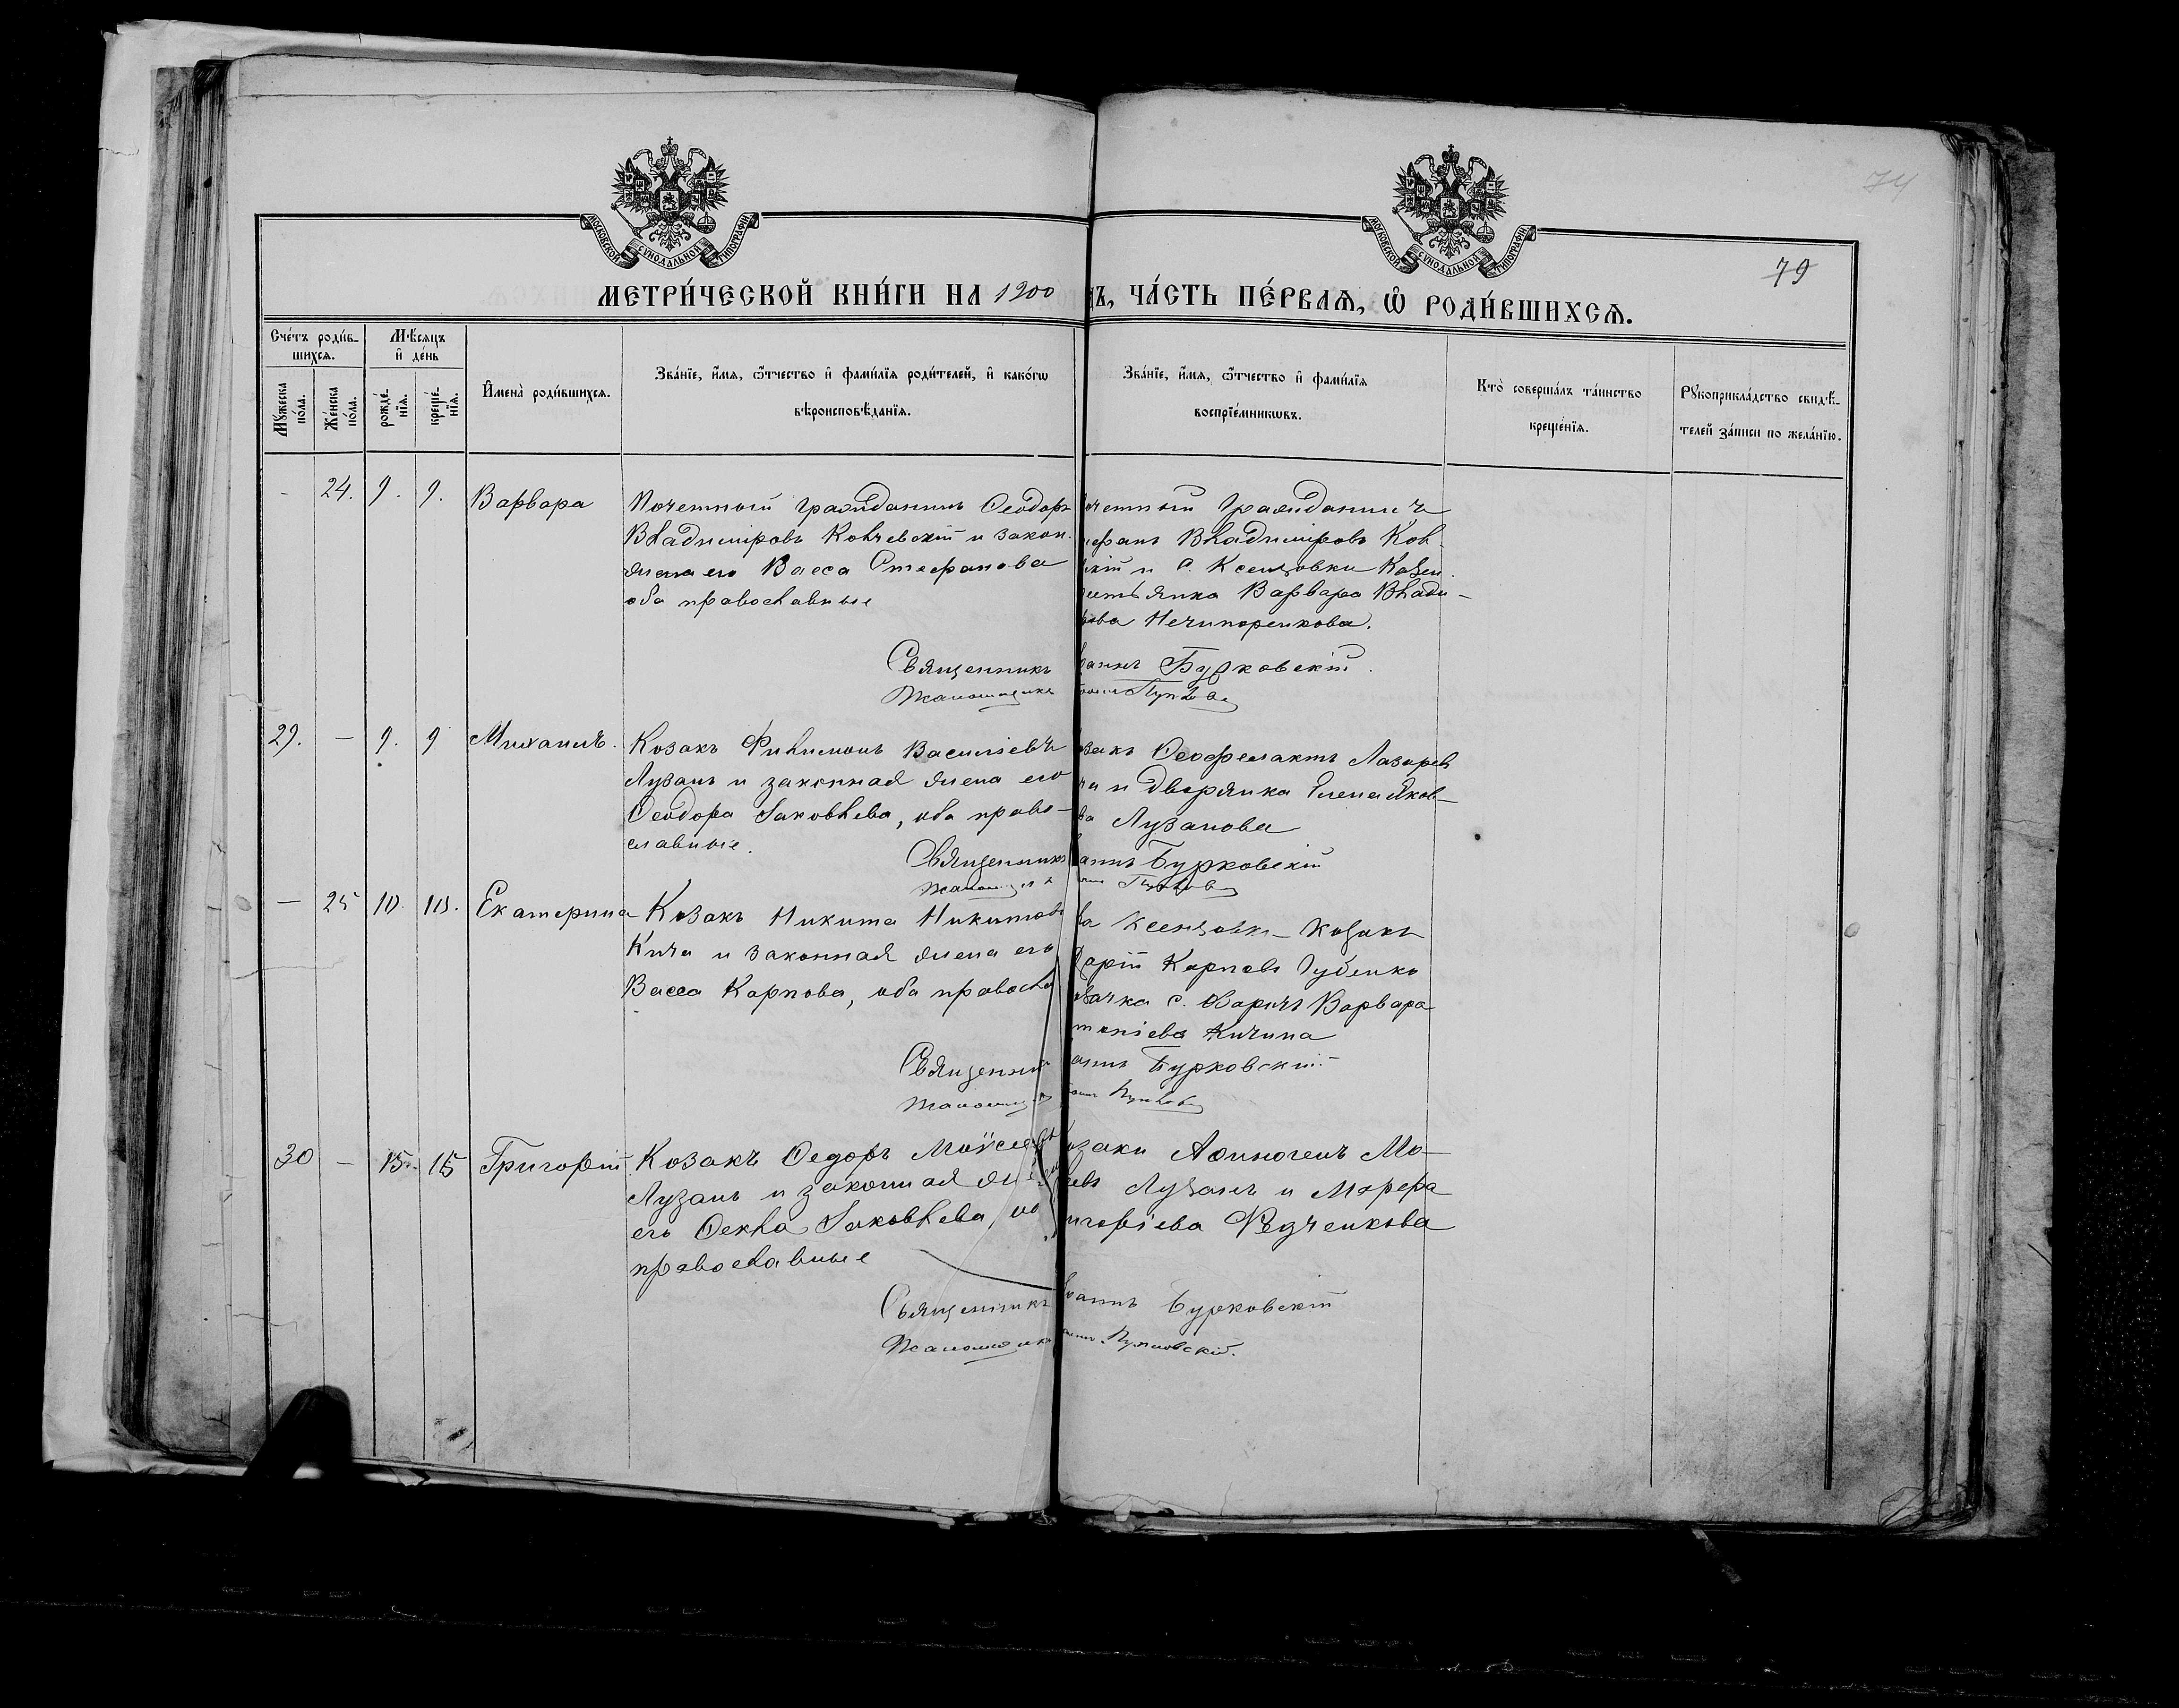 74
79
МОСКОВСКОЙ СУНОДАЛЬНОЙ ТИПОГРАФІИ
МОСКОВСКОЙ СУНОДАЛЬНОЙ ТИПОГРАФІИ
МЕТРИ́ЧЕСКОЙ КНИ́ГИ НА 1900 ЧА́СТЬ ПЕ́РВАѦ, Ѡ҆ РОДИ́ВШИХСѦ.
Сче́тъ роди́в-
шихсѧ.
Мꙋжеска по́ла.
Же́нска по́ла.
Мѣ́сѧцъ и҆ де́нь
рожде́-нїѧ.
креще́-нїѧ.
И҆мена̀ роди́вшихсѧ.
Зва́нїе, и҆́мѧ, ѻ҆́тчество и҆ фами́лїѧ роди́телей, и҆ како́гѡ
вѣроисповѣ́данїѧ.
Зва́нїе, и҆́мѧ, ѻ҆́тчество и҆ фами́лїѧ
воспрїе́мникѡвъ.
Кто̀ соверша́лъ та́инство
креще́нїѧ.
Рꙋкоприкла́дство свидѣ́-
телей за́писи по жела́нїю.
- 24. 9. 9. Варвара
Почетный гражданинъ Ѳеодоръ
Владиміровъ и закон.
жена его Васса Стефанова
оба православные
четный гражданинъ
ефанъ Владиміровъ Ков-
и с. Ксензовки
Варвара Влади-
рова Нечипоренкова.
Священникъ анъ Бурковскій.
29. — 9. 9 Михаилъ.
Козакъ Филимонъ Васильевъ
Лузанъ и законная жена его
Ѳеодора Іаковлева, оба право-
славные.
закъ Ѳеофилактъ Лазарев
и дворянка Елена Яков-
ва Лузанова
Священникъ аннъ Бурковскій
— 25 10. 10. Екатерина
Козакъ Никита Никитовъ
Кича и законная жена его
Васса Карпова, оба правосла
ва Ксензовки – козакъ
Карповъ Губенко
зачка с. Варвара
Кичина
Священник аннъ Бурковскій
30 — 15. 15 Григорій
Козакъ Ѳедоръ Моѵсеевъ
Лузанъ и законная жена
его Ѳекла Іаковлева, об
православные
озаки Аѳиногенъ Мо-
еевъ Лузанъ и Марѳа
игоріева Редченкова
Священникъ оаннъ Бурковскій